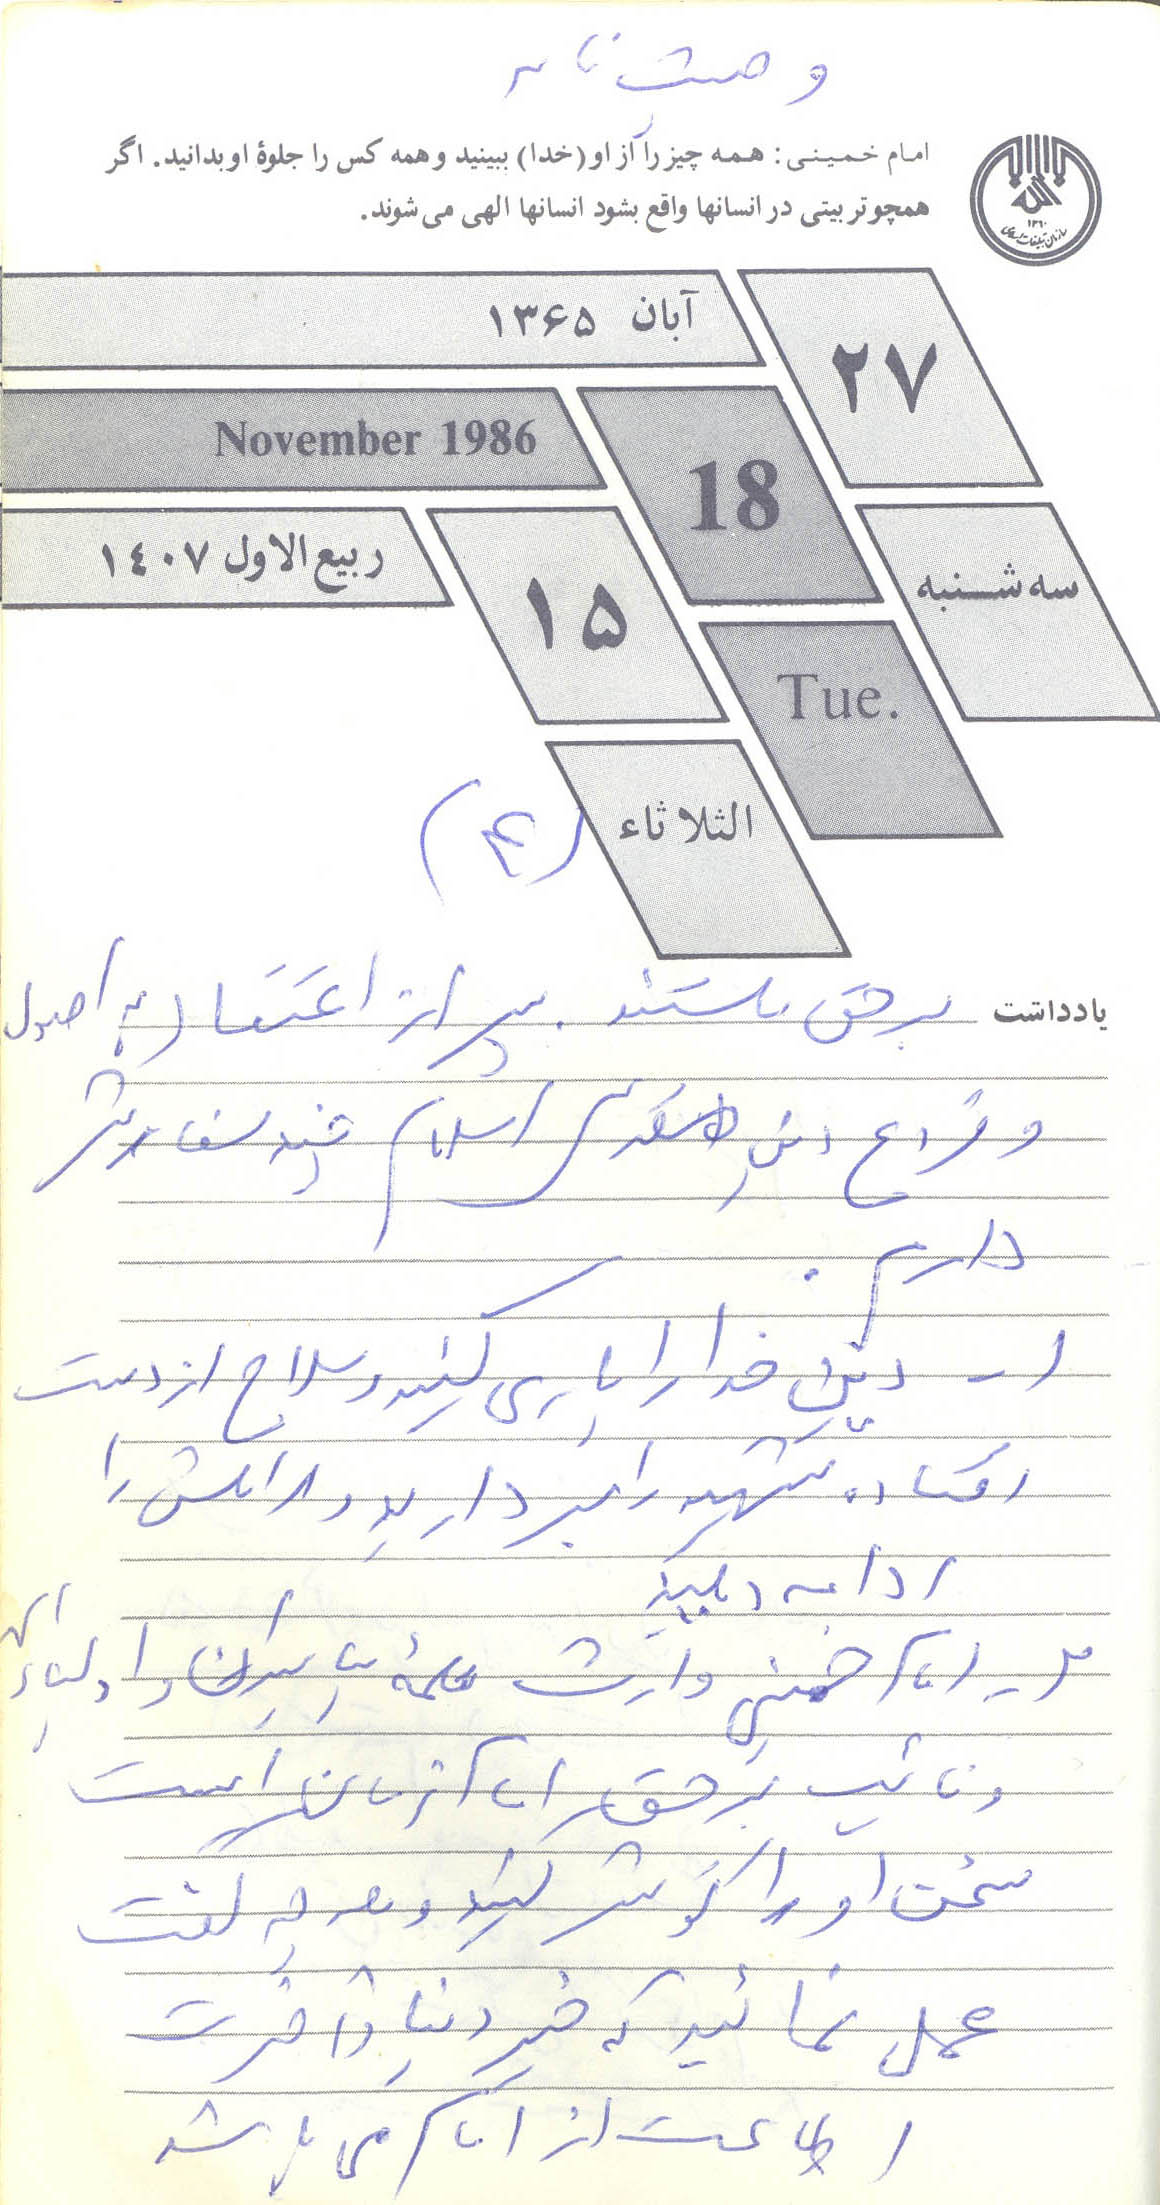 وصیت نامه
امام خمینی: همه چیز را از او (خدا) ببینید و همه کس را جلوهٔ او بدانید. اگر
همچو تربیتی در انسانها واقع بشود انسانها الهی می‌شوند.
۱۳۶۰
سازمان تبلیغات اسلامی
۲۷
آبان ۱۳۶۵
18
November 1986
سه شنبه
۱۵
ربیع الاول ۱٤۰۷
Tue.
الثلاثاء
(۴)
یادداشت
برحق باشند. پس از اعتقاد به اصول
و فروع دین مقدس اسلام چند سفارش
دارم.
۱- دین خدا را یاری کنید و سلاح از دست
افتاده شهید را بردارید و راهش را
ادامه دهید
۲- امام خمینی وارث همهٔ پیامبران و اولیاء الهی
و نائب برحق امام زمان است
سخن او را گوش کنید و هر چه گفت
عمل نمائید که خیر دنیا و آخرت
اطاعت از امام می باشد